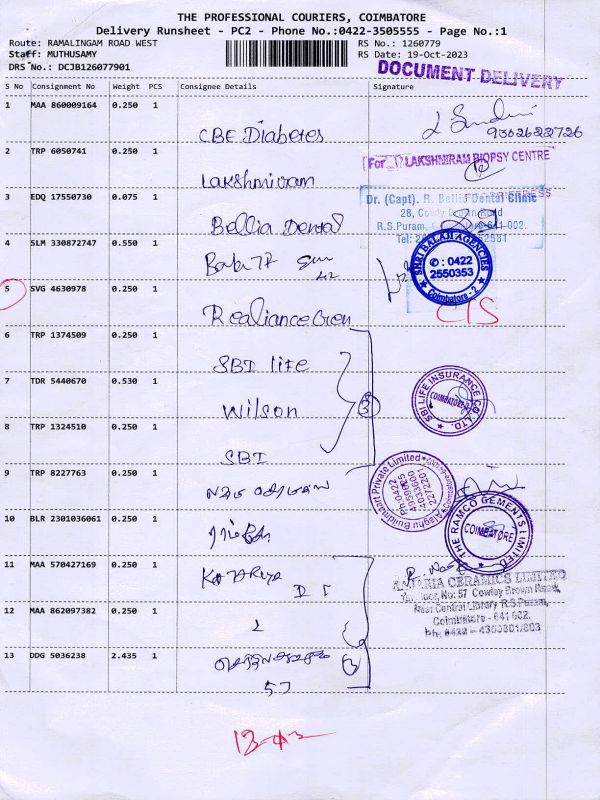 THE PROFESSIONAL COURIERS, COIMBATORE
Delivery Runsheet - PC2 - Phone No.:0422-3505555 - Page No.:1
Route: RAMALINGAM ROAD WEST
RS No.: 1260779
Staff: MUTHUSAMY
RS Date: 19-Oct-2023
DRS No.: DCJB126077901
DOCUMENT DELIVERY
S No Consignment No Weight PCS Consignee Details Signature
1 MAA 860009164 0.250 1
CBE Diabetes
9362622726
2 TRP 6050741 0.250 1
Lakshmiram
For LAKSHMIRAM BIOPSY CENTRE
3 EDQ 17550730 0.075 1
Bellia Dental
Dr. (Capt). R. Bellie Dental Clinic
28, Cowly Brown Road
R.S.Puram, Coimbatore-641 002.
4 SLM 330872747 0.550 1
SHRI BALAJI AGENCIES
✆ : 0422
2550353
Coimbatore - 2
5 SVG 4630978 0.250 1
Realiance Gen
6 TRP 1374509 0.250 1
SBI life
7 TDR 5440670 0.530 1
Wilson
3
SBI LIFE INSURANCE CO. LTD.
COIMBATORE
8 TRP 1324510 0.250 1
SBI
9 TRP 8227763 0.250 1
Alaghu Buildmart Private Limited
Ph:0422
10 BLR 2301036061 0.250 1
THE RAMCO CEMENTS LIMITED
COIMBATORE
11 MAA 570427169 0.250 1
KATARIA CERAMICS LIMITED
Floor, No: 57 Cowley Brown Road,
Near Central Library R.S.Puram,
Coimbatore - 641 002.
Ph: 0422 - 4350801/803
12 MAA 862097382 0.250 1
2
13 DDG 5036238 2.435 1
57